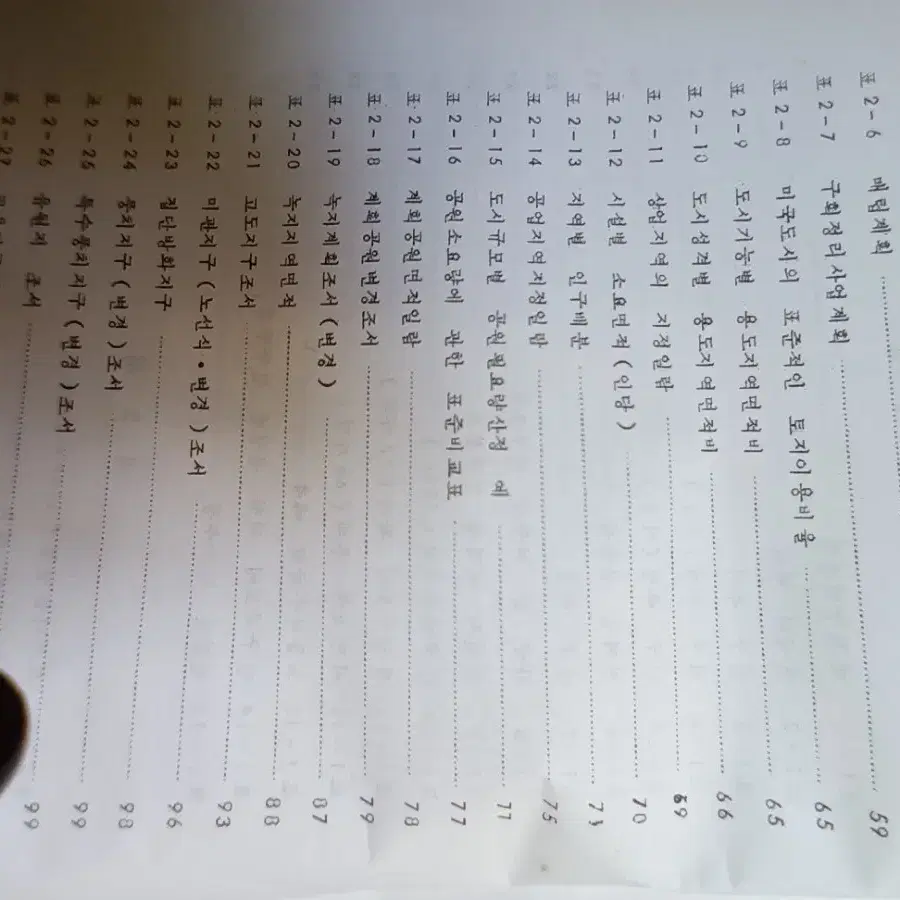 표 2-6 매립계획 59
표 2-7 구획정리사업계획 65
표 2-8 미국도시의 표준적인 토지이용비율 65
표 2-9 도시기능별 용도지역면적비 66
표 2-10 도시성격별 용도지역면적비 69
표 2-11 상업지역의 지정일람 70
표 2-12 시설별 소요면적(인당)
표 2-13 지역별 인구배분
표 2-14 공업지역지정일람 75
표 2-15 도시규모별 공원필요량산정 예
표 2-16 공원소요량에 관한 표준비교표 77
표 2-17 계획공원면적일람 78
표 2-18 계획공원변경조서 79
표 2-19 녹지계획조서(변경) 87
표 2-20 녹지지역면적 88
표 2-21 고도지구조서 93
표 2-22 미관지구(노선식·변경)조서 96
표 2-23 집단방화지구 98
표 2-24 풍치지구(변경)조서 99
표 2-25 특수풍치지구(변경)조서 99
표 2-26 유원지 조서
표 2-27